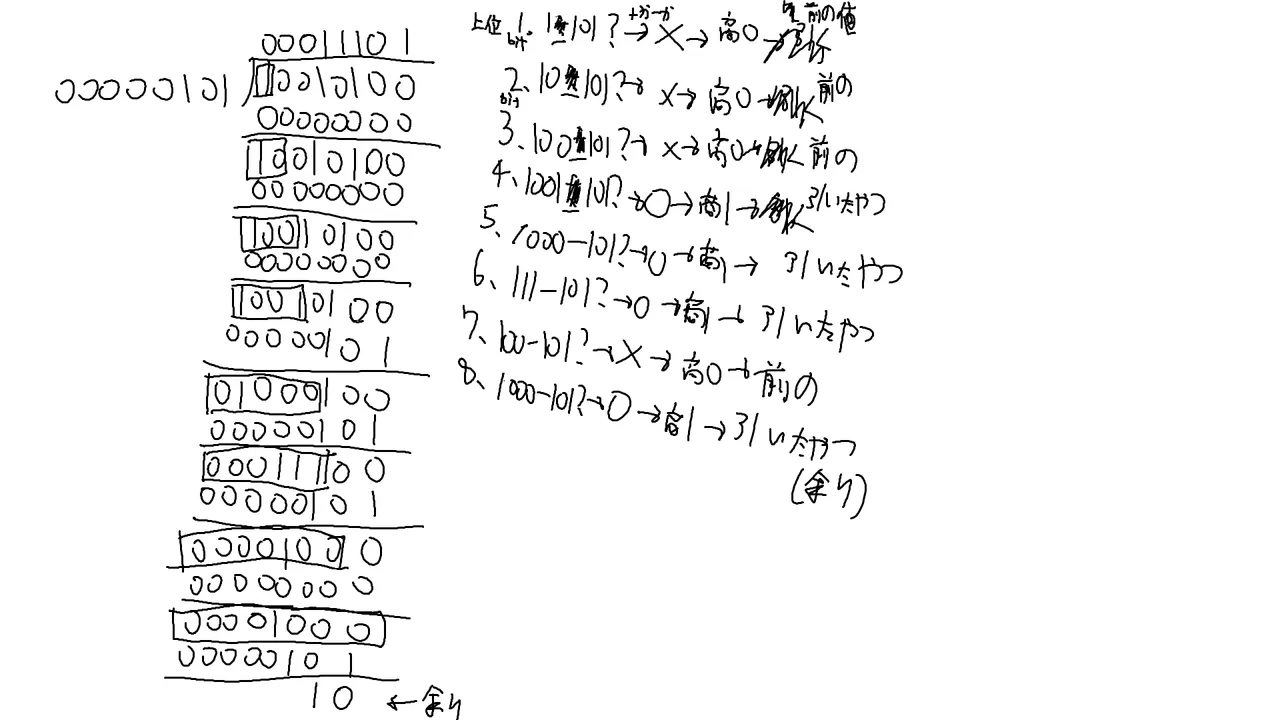 00011101
00000101 10010100
00000000
10010100
00000000
10010100
00000000
10010100
00000101
01000100
00000101
00011100
00000101
00001000
00000000
00001000
00000101
10 ← 余り
上位 1. 1 101? → × → 商0 → 前の値
bit
2. 10 101? → × → 商0 → 前の
bit
3. 100 101? → × → 商0 → 前の
4. 1001 101? → 〇 → 商1 → 引いたやつ
5. 1000-101? → 〇 → 商1 → 引いたやつ
6. 111-101? → 〇 → 商1 → 引いたやつ
7. 100-101? → × → 商0 → 前の
8. 1000-101? → 〇 → 商1 → 引いたやつ
(余り)